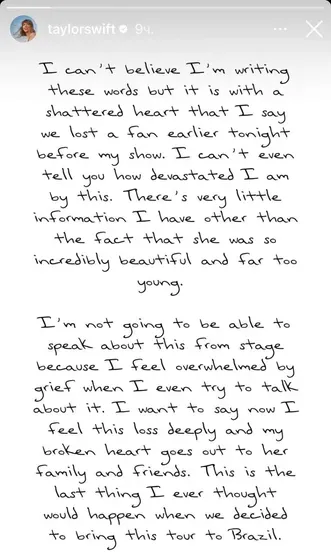 taylorswift 9ч.
I can't believe I'm writing
these words but it is with a
shattered heart that I say
we lost a fan earlier tonight
before my show. I can't even
tell you how devastated I am
by this. There's very little
information I have other than
the fact that she was so
incredibly beautiful and far too
young.
I'm not going to be able to
speak about this from stage
because I feel overwhelmed by
grief when I even try to talk
about it. I want to say now I
feel this loss deeply and my
broken heart goes out to her
family and friends. This is the
last thing I ever thought
would happen when we decided
to bring this tour to Brazil.